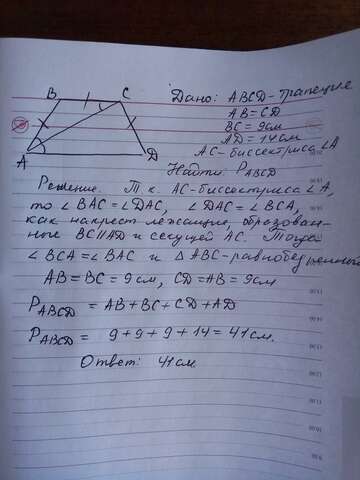 B C
A D
Дано: ABCD - трапеция
AB = CD
BC = 9см
AD = 14см
AC - биссектриса ∠A
Найти: P ABCD
Решение. Т.к. AC - биссектриса ∠A,
то ∠BAC = ∠DAC, ∠DAC = ∠BCA,
как накрест лежащие, образован-
ные BC∥AD и секущей AC. Тогда
∠BCA = ∠BAC и △ABC - равнобедренный
AB = BC = 9см, CD = AB = 9см
P ABCD = AB + BC + CD + AD
P ABCD = 9 + 9 + 9 + 14 = 41см.
Ответ: 41см